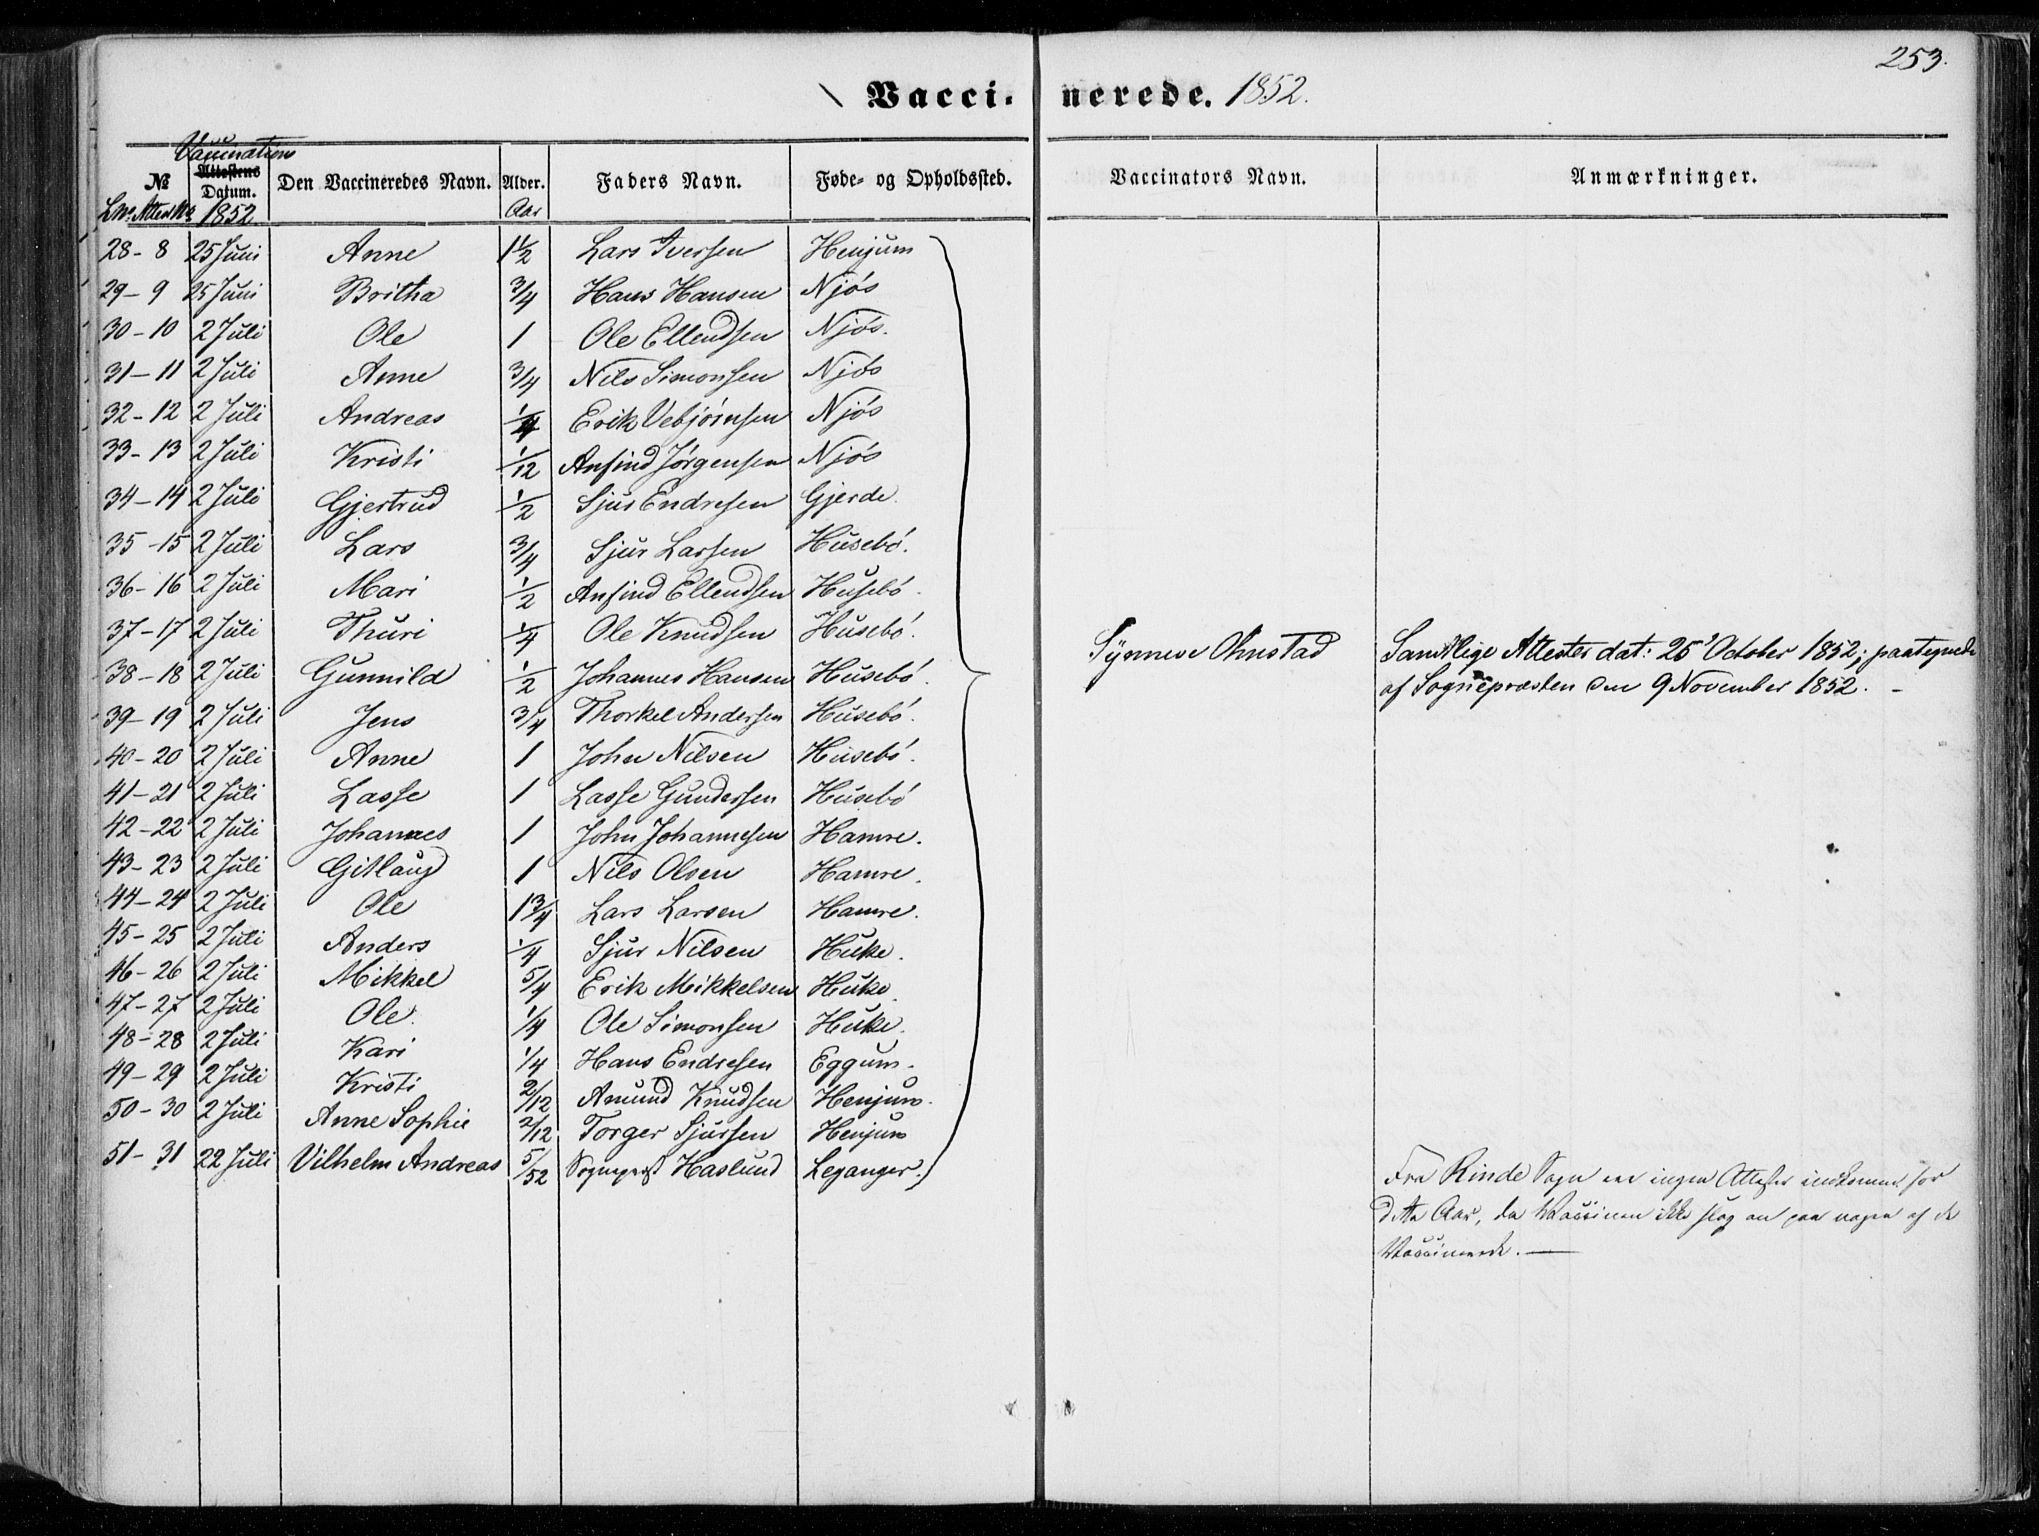 253.
Vacci- nerede. 1852.
Vaccinations
№ Attestens Datum. Den Vaccineredes Navn. Alder. Faders Navn. Føde- og Opholdssted. Vaccinators Navn. Anmærkninger.
LNo. Attest No 1852. Aar
28 - 8 25 Juni Anne 1 1/2 Lars Iversen Henjum
29 - 9 25 Juni Britha 3/4 Hans Hansen Njøs
30 - 10 2 Juli Ole 1 Ole Ellendsen Njøs.
31 - 11 2 Juli Anne 3/4 Nils Simonsen Njøs
32 - 12 2 Juli Andreas 1/4 Erik Vebjørnsen Njøs
33 - 13 2 Juli Kristi 1/12 Anfind Jørgensen Njøs
34 - 14 2 Juli Gjertrud 1/2 Sjur Endresen Gjerde.
35 - 15 2 Juli Lars 3/4 Sjur Larsen Husebø.
36 - 16 2 Juli Mari 1/2 Anfind Ellendsen Husebø.
37 - 17 2 Juli Thuri 1/4 Ole Knudsen Husebø. Synneve Ohnstad Samtlige Attester dat: 25' October 1852; paategnede
38 - 18 2 Juli Gunnild 1/2 Johannes Hansen Husebø. af Sognepræsten den 9 November 1852. -
39 - 19 2 Juli Jens 3/4 Thorkel Andersen Husebø.
40 - 20 2 Juli Anne 1 John Nilsen Husebø.
41 - 21 2 Juli Lasse 1 Lasse Gundersen Husebø
42 - 22 2 Juli Johannes 1 John Johannesen Hamre.
43 - 23 2 Juli Gitlaug 1 Nils Olsen Hamre.
44 - 24 2 Juli Ole 1 3/4 Lars Larsen Hamre.
45 - 25 2 Juli Anders 1/4 Sjur Nilsen Huke.
46 - 26 2 Juli Mikkel 5/4 Erik Mikkelsen Huke.
47 - 27 2 Juli Ole. 1/4 Ole Simonsen Huke.
48 - 28 2 Juli Kari 1/4 Hans Endresen Eggum.
49 - 29 2 Juli Kristi 2/12 Amund Knudsen Henjum.
50 - 30 2 Juli Anne Sophie 2/12 Torger Sjursen Henjum
51 - 31 22 Juli Vilhelm Andreas 5/52 Sogneprst Haslund Leganger.
Fra Rinde Sogn ere ingen Attester indkomne for
dette Aar, da Vaccinen ikke slog an paa nogen af de
Vaccinerede. —